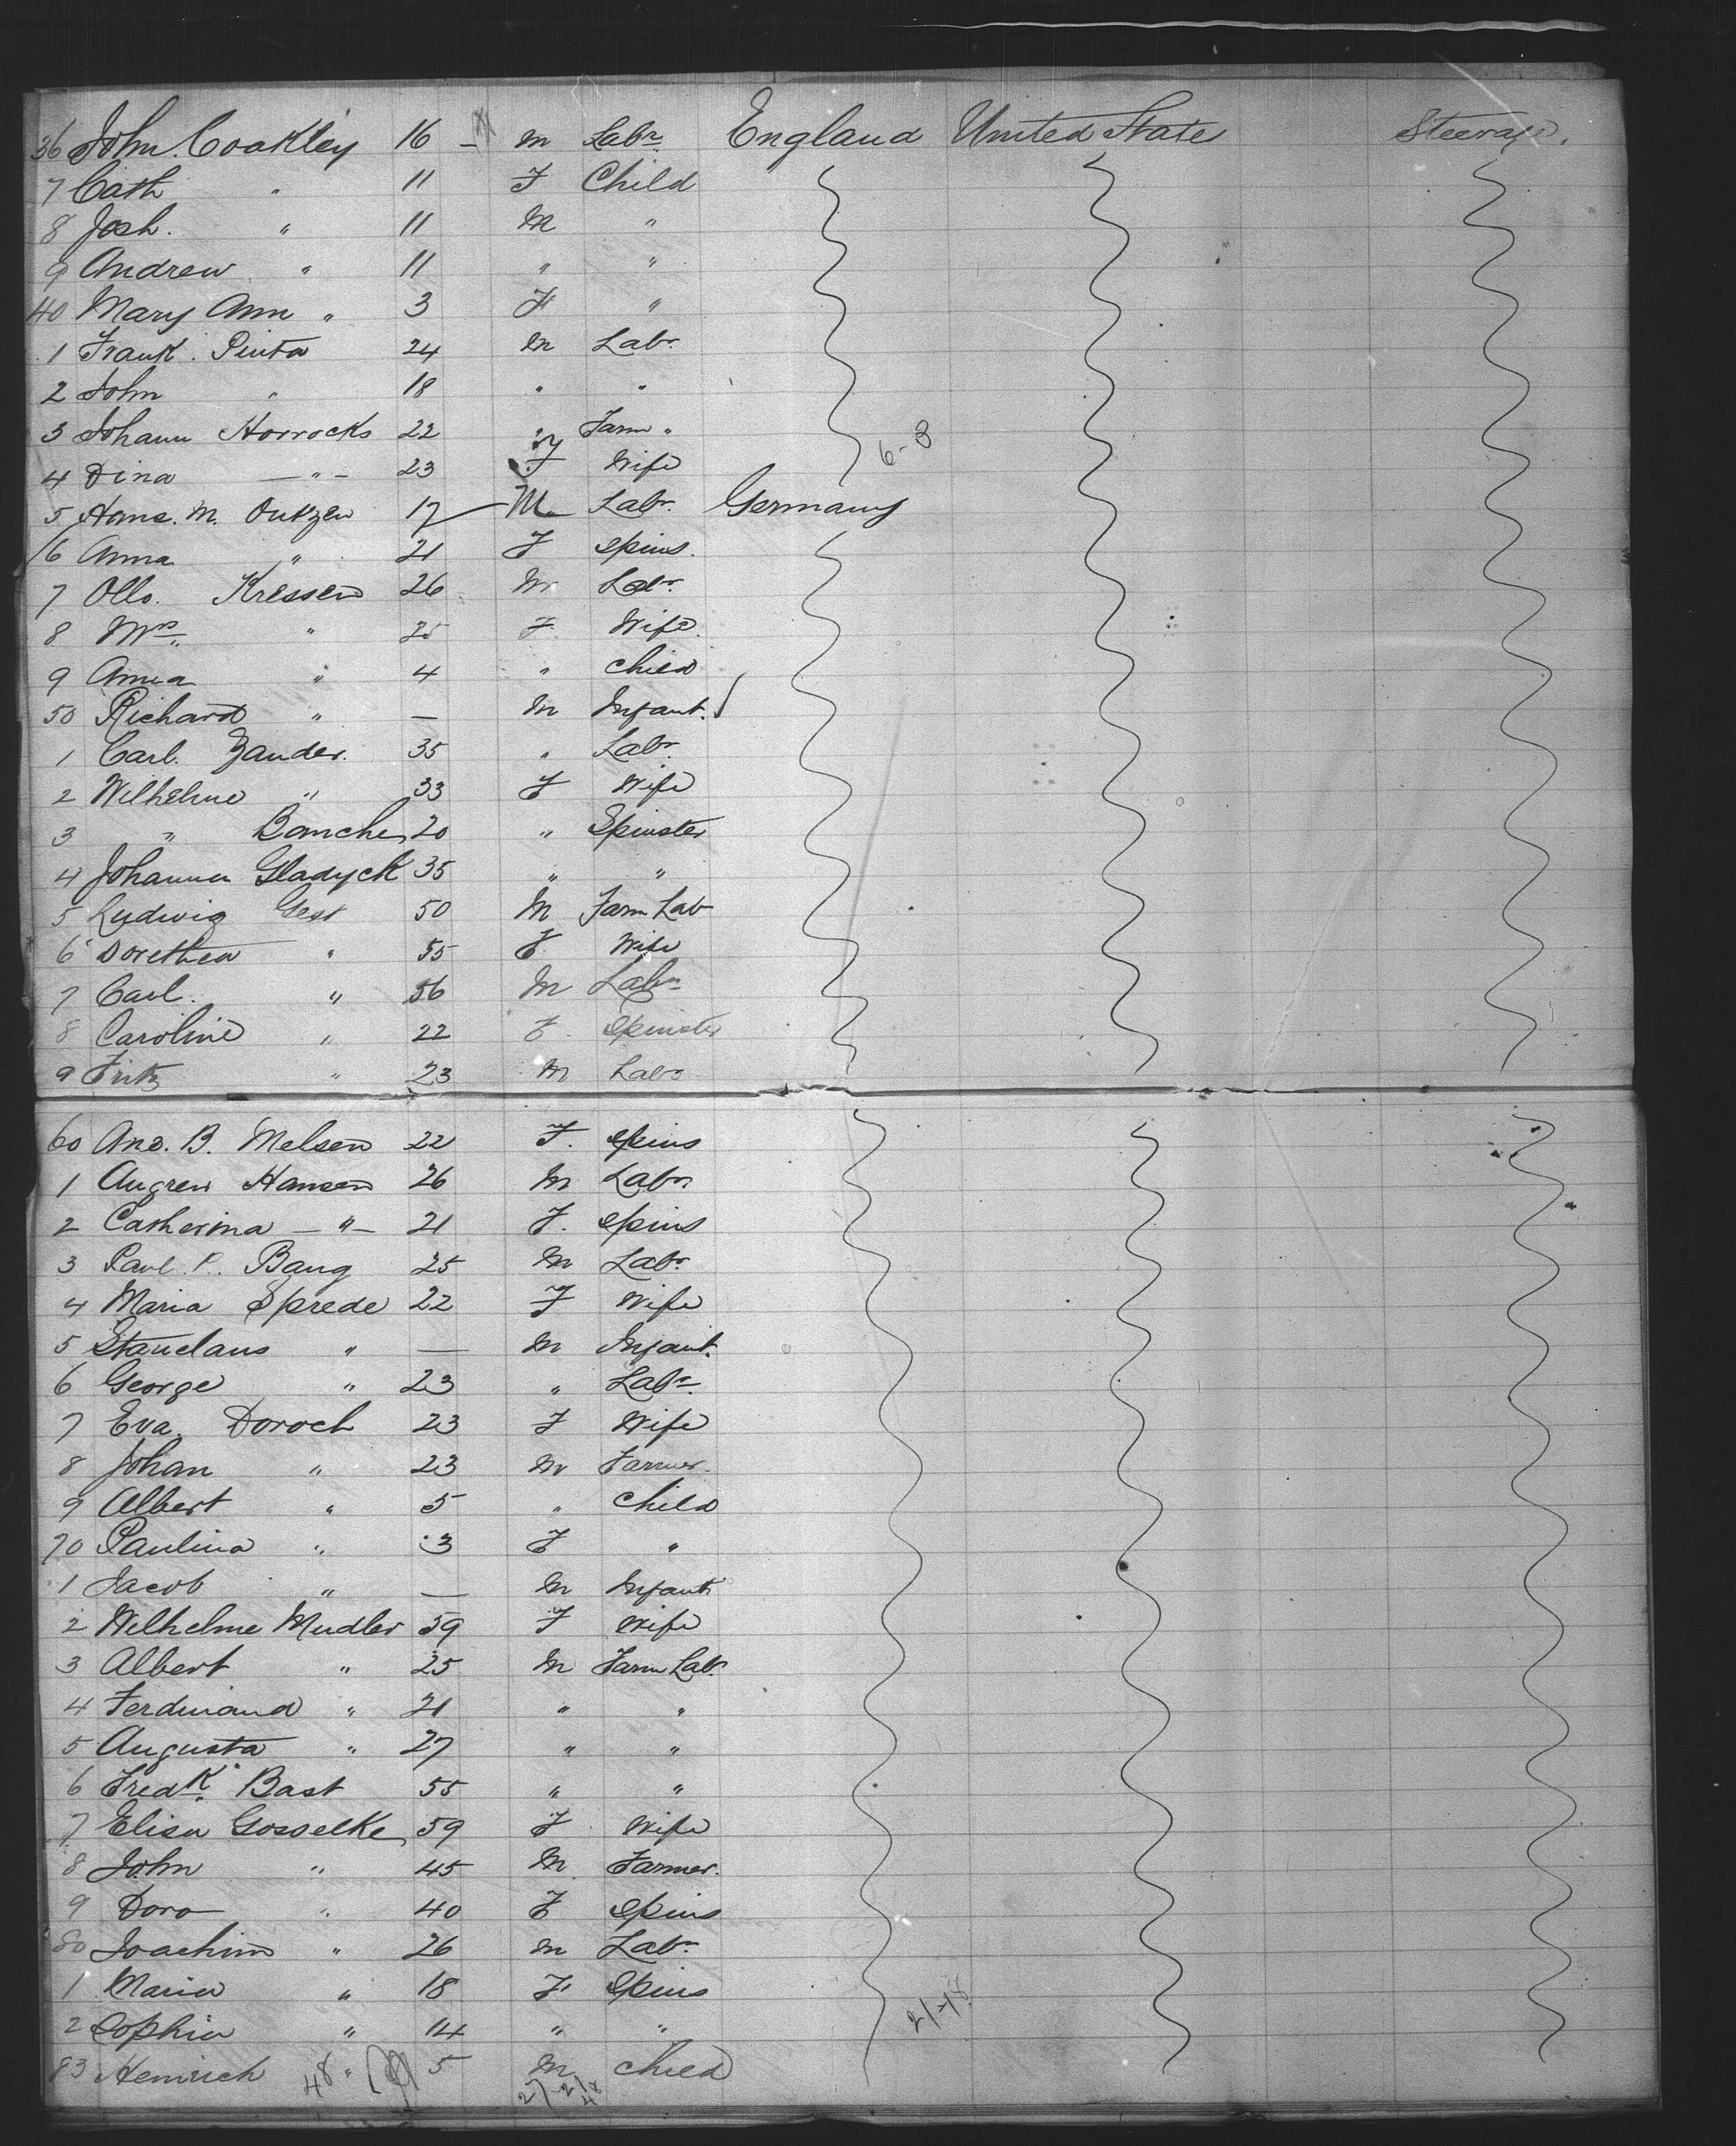 36 John Coakley 16 - m Labr. England United State Steerage.
7 Cath " 11 F Child
8 Josh. " 11 M "
9 Andrew " 11 " "
40 Mary Ann " 3 F "
1 Frank. Pinta 24 m Labr.
2 John " 18 " "
3 Johann Horrocks 22 " Farm "
4 Dina - " - 23 F Wife 6-3
5 Hans. M. Outzen 17 M Labr. Germany
6 Anna " 21 F Spins.
7 Otto. Kressen 26 M Labr.
8 Mrs " 25 F. Wife
9 Anna " 4 " child
50 Richard " — M Infant.
1 Carl. Zander. 35 " Labr.
2 Wilhelme " 33 F Wife
3 " Bamche 20 " Spinster
4 Johanna Gladyck 35 " "
5 Ludwig Gest 50 M Farm Lab
6 Dorethea " 55 F Wife
7 Carl. " 56 M Labr
8 Caroline " 22 F. Spinster
9 Fritz " 23 M Labr
60 Ane. B. Melsen 22 F. Spins
1 Augrew Hansen 26 M Labr.
2 Catherina - " - 21 F. Spins
3 Paul. P. Bang 25 M Labr.
4 Maria Sprede 22 F Wife
5 Stanclaus " — M Infant.
6 George " 23 " Labr.
7 Eva. Doroch 23 F Wife
8 Johan " 23 M Farmer.
9 Albert " 5 " Child
70 Paulina " 3 F "
1 Jacob " — M Infant
2 Wilhelme Mudler 59 F Wife
3 Albert " 25 M Farm Labr.
4 Ferdinand " 21 " "
5 Augusta " 27 " "
6 Fredk. Bast 55 " "
7 Elisa Gosselke 59 F Wife
8 John " 45 M Farmer.
9 Dora " 40 F Spins
80 Joachim " 26 m Labr.
1 Maria " 18 F Spins
2 Sophia " 14 " " 21-48
83 Heinrich " 5 M child
48 27-21
48